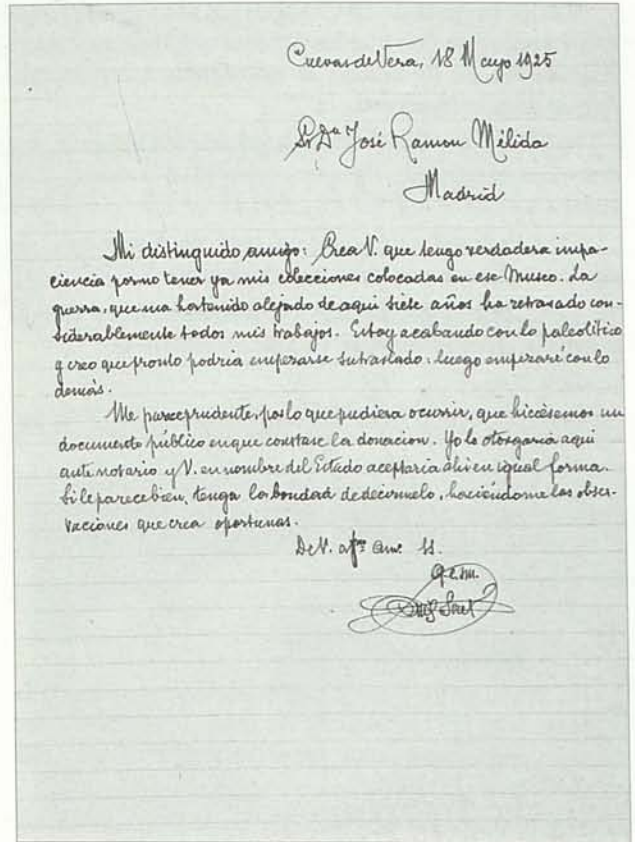 Cuevas de Vera, 18 Mayo 1925
Sr Dn José Ramon Mélida
Madrid
Mi distinguido amigo: Crea V. que tengo verdadera impa-
ciencia por no tener ya mis colecciones colocadas en ese Museo. La
guerra, que me ha tenido alejado de aqui siete años ha retrasado con-
siderablemente todos mis trabajos. Estoy acabando con lo paleolítico
y creo que pronto podria empezarse su traslado: luego empezaré con lo
demás.
Me parece prudente, por lo que pudiera ocurrir, que hiciésemos un
documento público en que constase la donacion. Yo lo otorgaria aqui
ante notario y V. en nombre del Estado aceptaria ahi en igual forma.
Si le parece bien, tenga la bondad de decirmelo, haciéndome las obser-
vaciones que crea oportunas.
De V. afmo am. ss.
q.e.s.m.
Luis Siret